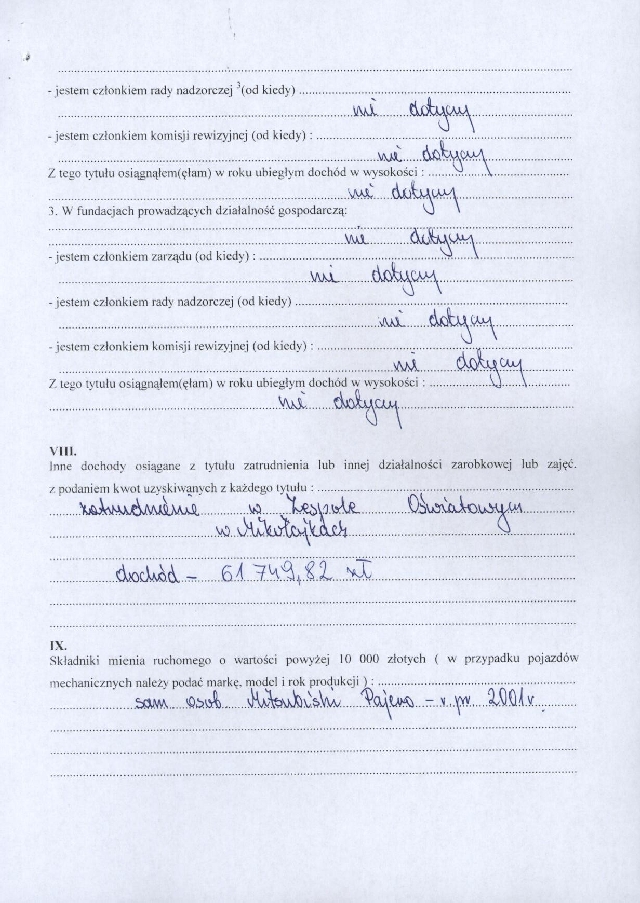 - jestem członkiem rady nadzorczej ³(od kiedy)
nie dotyczy
- jestem członkiem komisji rewizyjnej (od kiedy) :
nie dotyczy
Z tego tytułu osiągnąłem(ęłam) w roku ubiegłym dochód w wysokości :
nie dotyczy
3. W fundacjach prowadzących działalność gospodarczą:
nie dotyczy
- jestem członkiem zarządu (od kiedy) :
nie dotyczy
- jestem członkiem rady nadzorczej (od kiedy)
nie dotyczy
- jestem członkiem komisji rewizyjnej (od kiedy) :
nie dotyczy
Z tego tytułu osiągnąłem(ęłam) w roku ubiegłym dochód w wysokości :
nie dotyczy
VIII.
Inne dochody osiągane z tytułu zatrudnienia lub innej działalności zarobkowej lub zajęć.
z podaniem kwot uzyskiwanych z każdego tytułu :
zatrudnienie w Zespole Oświatowym
w Mikołajkach
dochód - 61 749,82 zł
IX.
Składniki mienia ruchomego o wartości powyżej 10 000 złotych ( w przypadku pojazdów
mechanicznych należy podać markę, model i rok produkcji ) :
sam. osob. Mitsubishi Pajero - r. pr. 2001r.